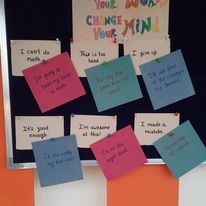 YOUR WORDS
CHANGE
YOUR MIND
I can't do
Math.
This is too
hard.
I give up.
I'm going to
train my brain
in Math
This may take
some time and
effort
I'll use some
of the strategies
I've learned
It's good
enough.
I'm awesome
at this!
I made a
mistake.
Is this really
my best work?
I'm on the
right track
Mistakes help
me improve